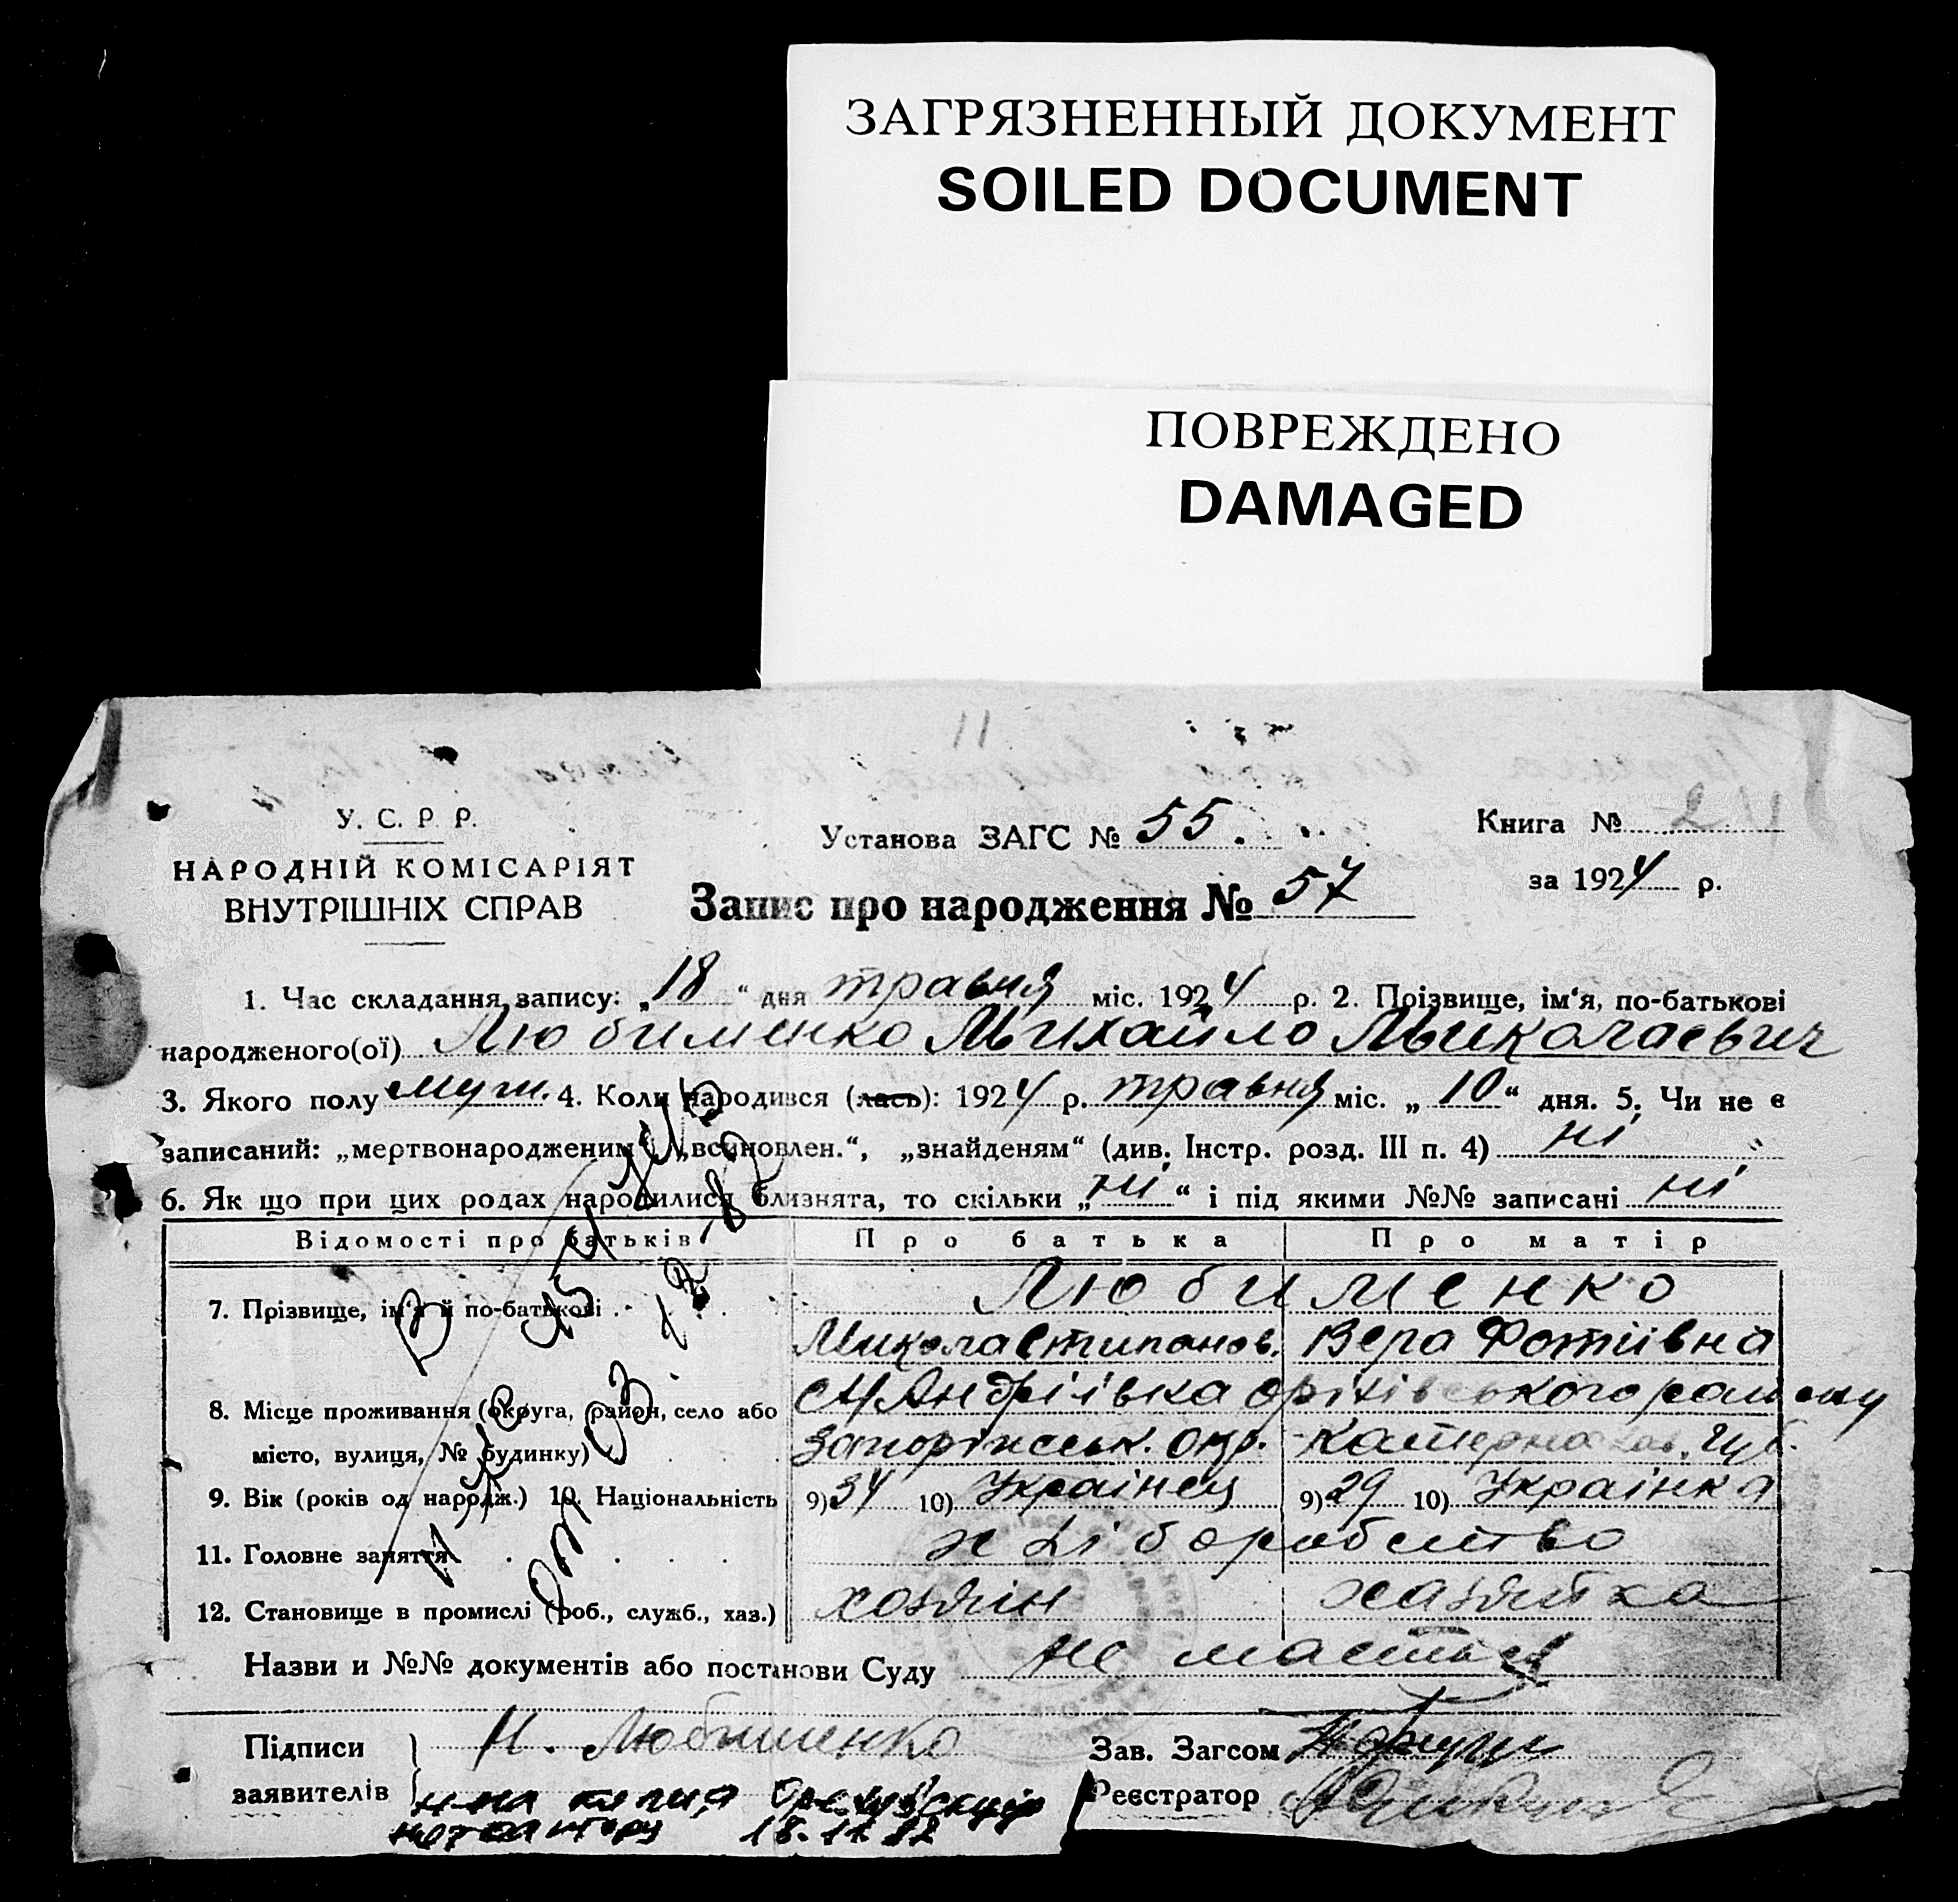 ЗАГРЯЗНЕННЫЙ ДОКУМЕНТ
SOILED DOCUMENT
ПОВРЕЖДЕНО
DAMAGED
У. С. Р. Р.
НАРОДНІЙ КОМІСАРІЯТ
ВНУТРІШНІХ СПРАВ
Установа ЗАГС № 55.
Книга № 2
за 1924 р.
Запис про народження № 57
1. Час складання запису: „18“ дня травня міс. 1924 р. 2. Прізвище, ім'я, по-батькові
народженого(ої) Любименко Михайло Миколаевич
3. Якого полу муж. 4. Коли народився (лась): 1924 р. травня міс. „10“ дня. 5. Чи не є
записаний: „мертвонародженим“, „всиновлен.“, „знайденям“ (див. Інстр. розд. III п. 4) ні
6. Як що при цих родах народилися близнята, то скільки „ні“ і під якими №№ записані ні
Відомості про батьків Про батька Про матір
7. Прізвище, ім'я й по-батькові Любименко
Микола Степанов. Вера Фотіівна
8. Місце проживання (округа, район, село або Андріівка Оріхівського району
місто, вулиця, № будинку) Запоріжськ. Окр. Катерино губ.
9. Вік (років од народж.) 10. Національність 9) 34 10) Украінец 9) 29 10) Украінка
11. Головне заняття хліборобство
12. Становище в промислі (роб., служб., хаз.) хозяін хазяйка
Назви и №№ документів або постанови Суду не маеться
Підписи Н. Любименко Зав. Загсом
заявителів Реєстратор
копия
нотариату 18.11.82